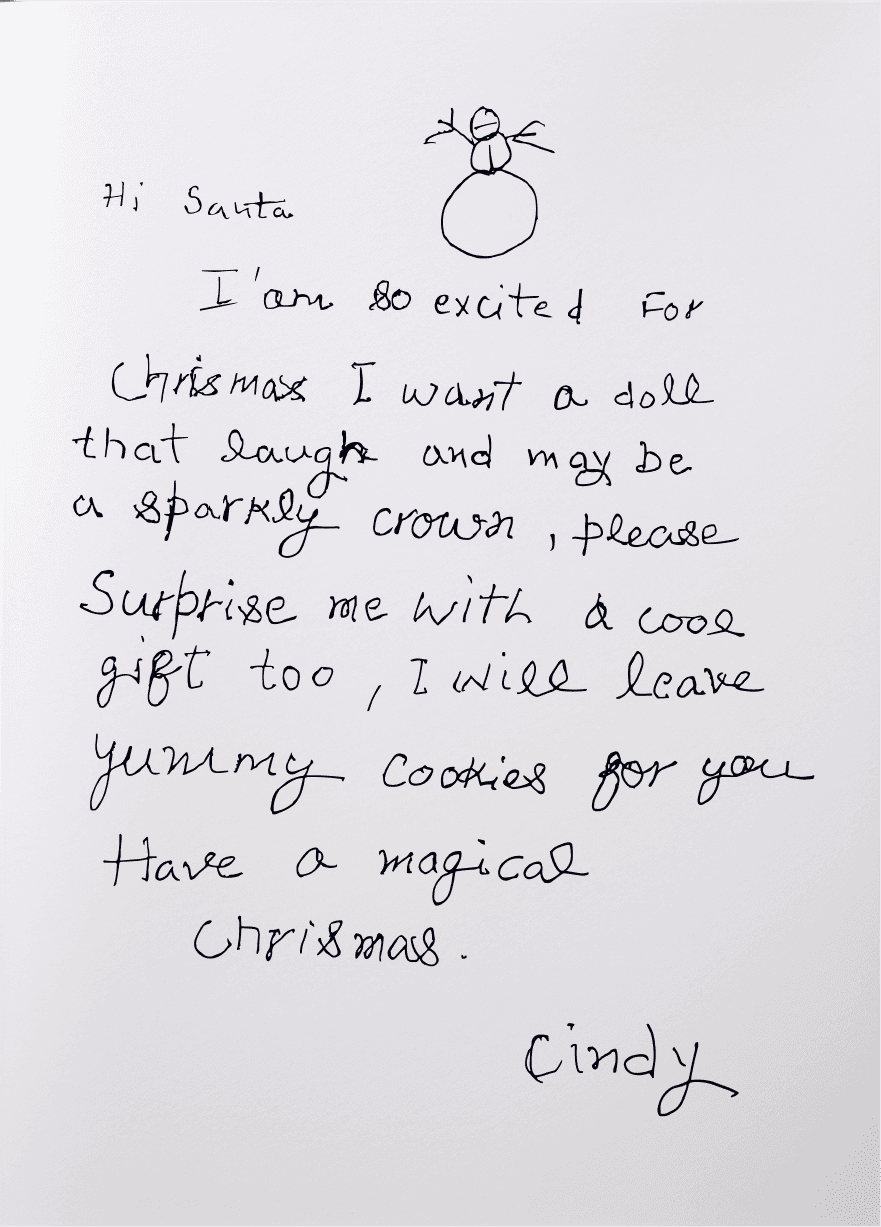 Hi Santa
I'am so excited For
Chrismas I want a doll
that laugh and may be
a sparkly crown, please
Surprise me with a cool
gift too, I will leave
yummy cookies for you
Have a magical
Chrismas.
Cindy